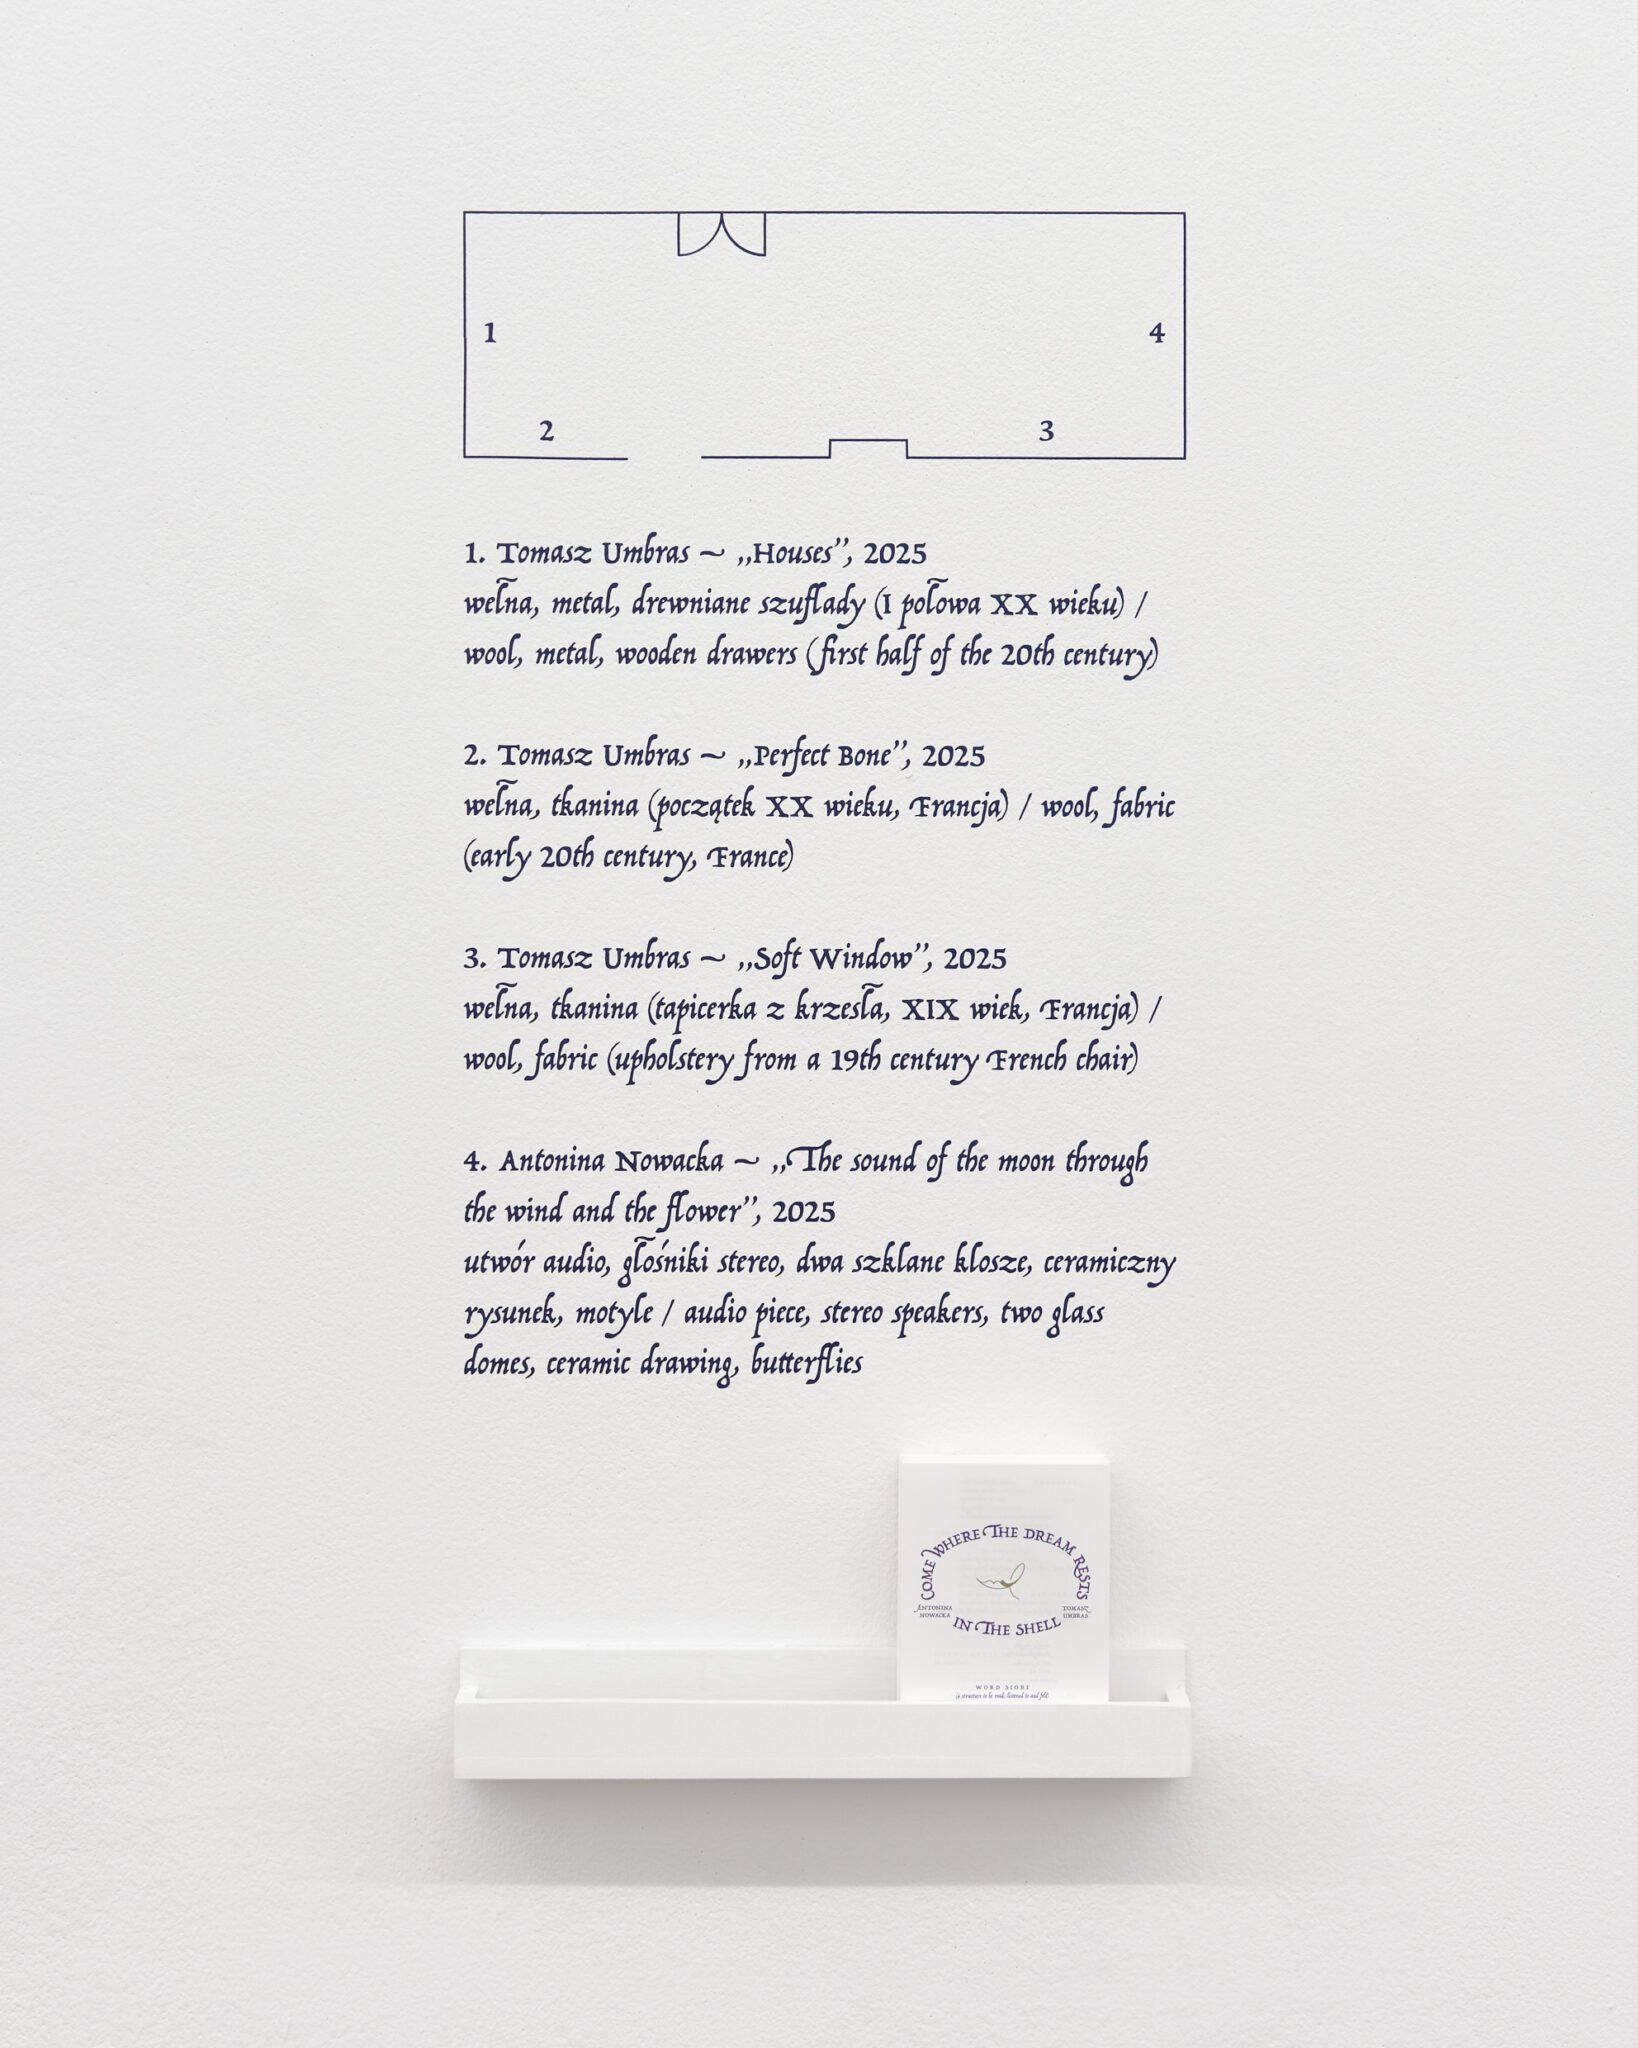 1
4
2
3
1. Tomasz Umbras ~ „Houses”, 2025
wełna, metal, drewniane szuflady (I połowa XX wieku) /
wool, metal, wooden drawers (first half of the 20th century)
2. Tomasz Umbras ~ „Perfect Bone”, 2025
wełna, tkanina (początek XX wieku, Francja) / wool, fabric
(early 20th century, France)
3. Tomasz Umbras ~ „Soft Window”, 2025
wełna, tkanina (tapicerka z krzesła, XIX wiek, Francja) /
wool, fabric (upholstery from a 19th century French chair)
4. Antonina Nowacka ~ „The sound of the moon through
the wind and the flower”, 2025
utwór audio, głośniki stereo, dwa szklane klosze, ceramiczny
rysunek, motyle / audio piece, stereo speakers, two glass
domes, ceramic drawing, butterflies
COME WHERE THE DREAM RESTS
ANTONINA
NOWACKA
TOMASZ
UMBRAS
IN THE SHELL
WORD SCORE
(a structure to be read, listened to and felt)